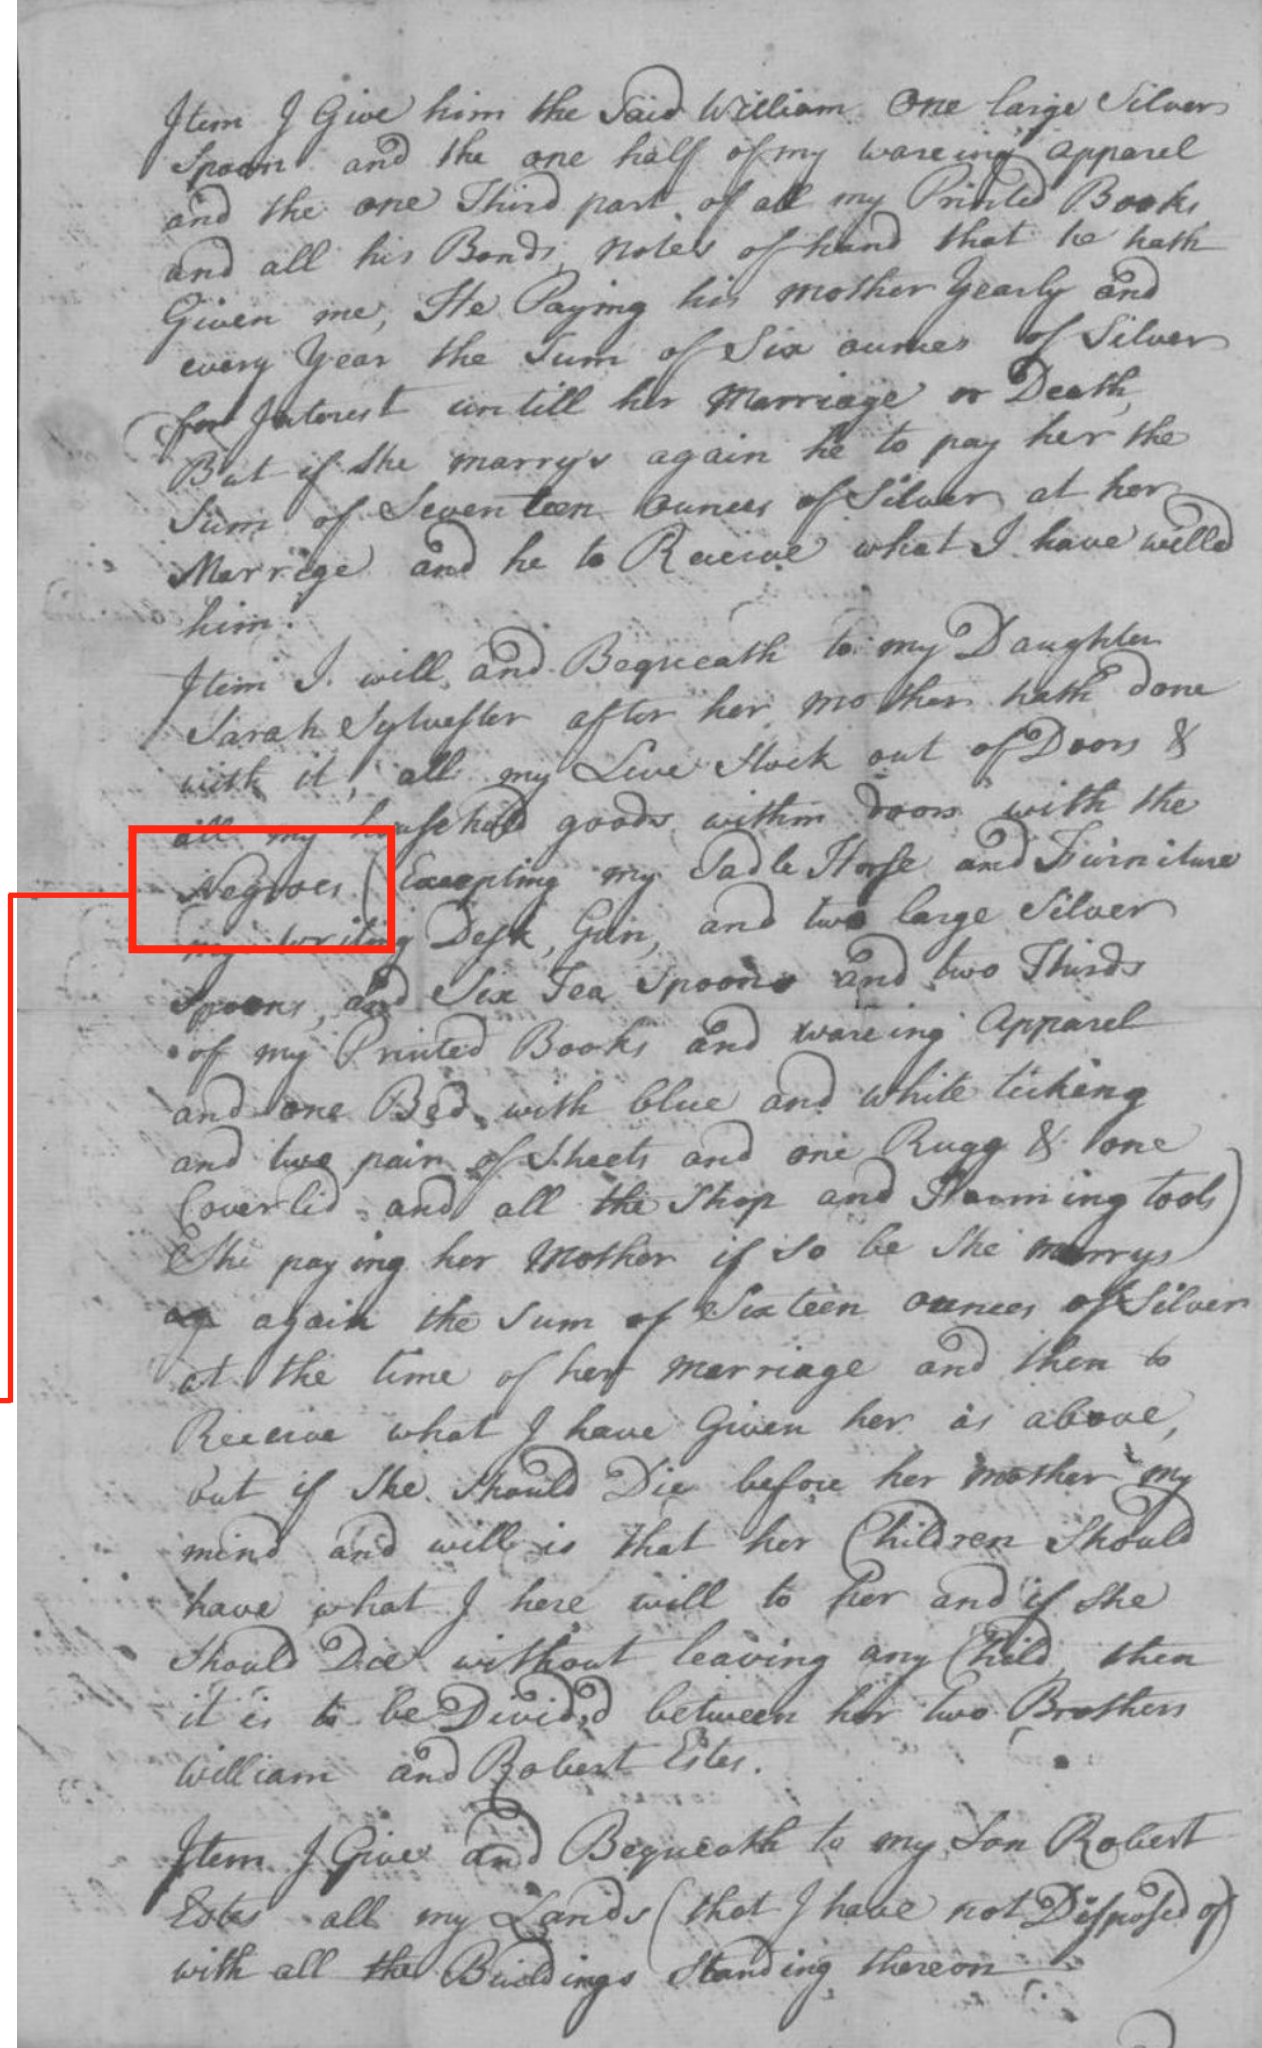 Item I Give him the Said William One large Silver
Spoon and the one half of my wareing apparel
and the one Third part of all my Printed Books
and all his Bonds, Notes of hand that he hath
Given me, He Paying his Mother Yearly and
every Year the Sum of Six ounces of Silver
for Interest untill her Marriage or Death,
But if she marrys again he to pay her the
Sum of Seventeen ounces of Silver at her
Marrige and he to Receive what I have willd
him.
Item I will, and Bequeath to my Daughter
Sarah Sylvester after her mother hath done
with it, all my Live Stock out of Doors &
all my household goods within doors with the
Negroes (Excepting my Sadle Horse and Furniture
my writing Desk, Gun, and two large Silver
Spoons, and Six Tea Spoons and two Thirds
of my Printed Books and wareing Apparel
and one Bed with blue and white ticking
and two pair of Sheets and one Rugg & one
Coverlid and all the Shop and Farming tools)
She paying her Mother if so be She marrys
again the Sum of Sixteen ounces of Silver
at the time of her marriage and then to
Receive what I have Given her as above,
but if She Should Die before her mother my
mind and will is that her Children Should
have what I here will to her and if She
Should Die without leaving any Child, then
it is to be Divided between her two Brothers
William and Robert Estes.
Item I Give and Bequeath to my Son Robert
Estes all my Lands (that I have not Disposed of)
with all the Buildings Standing thereon